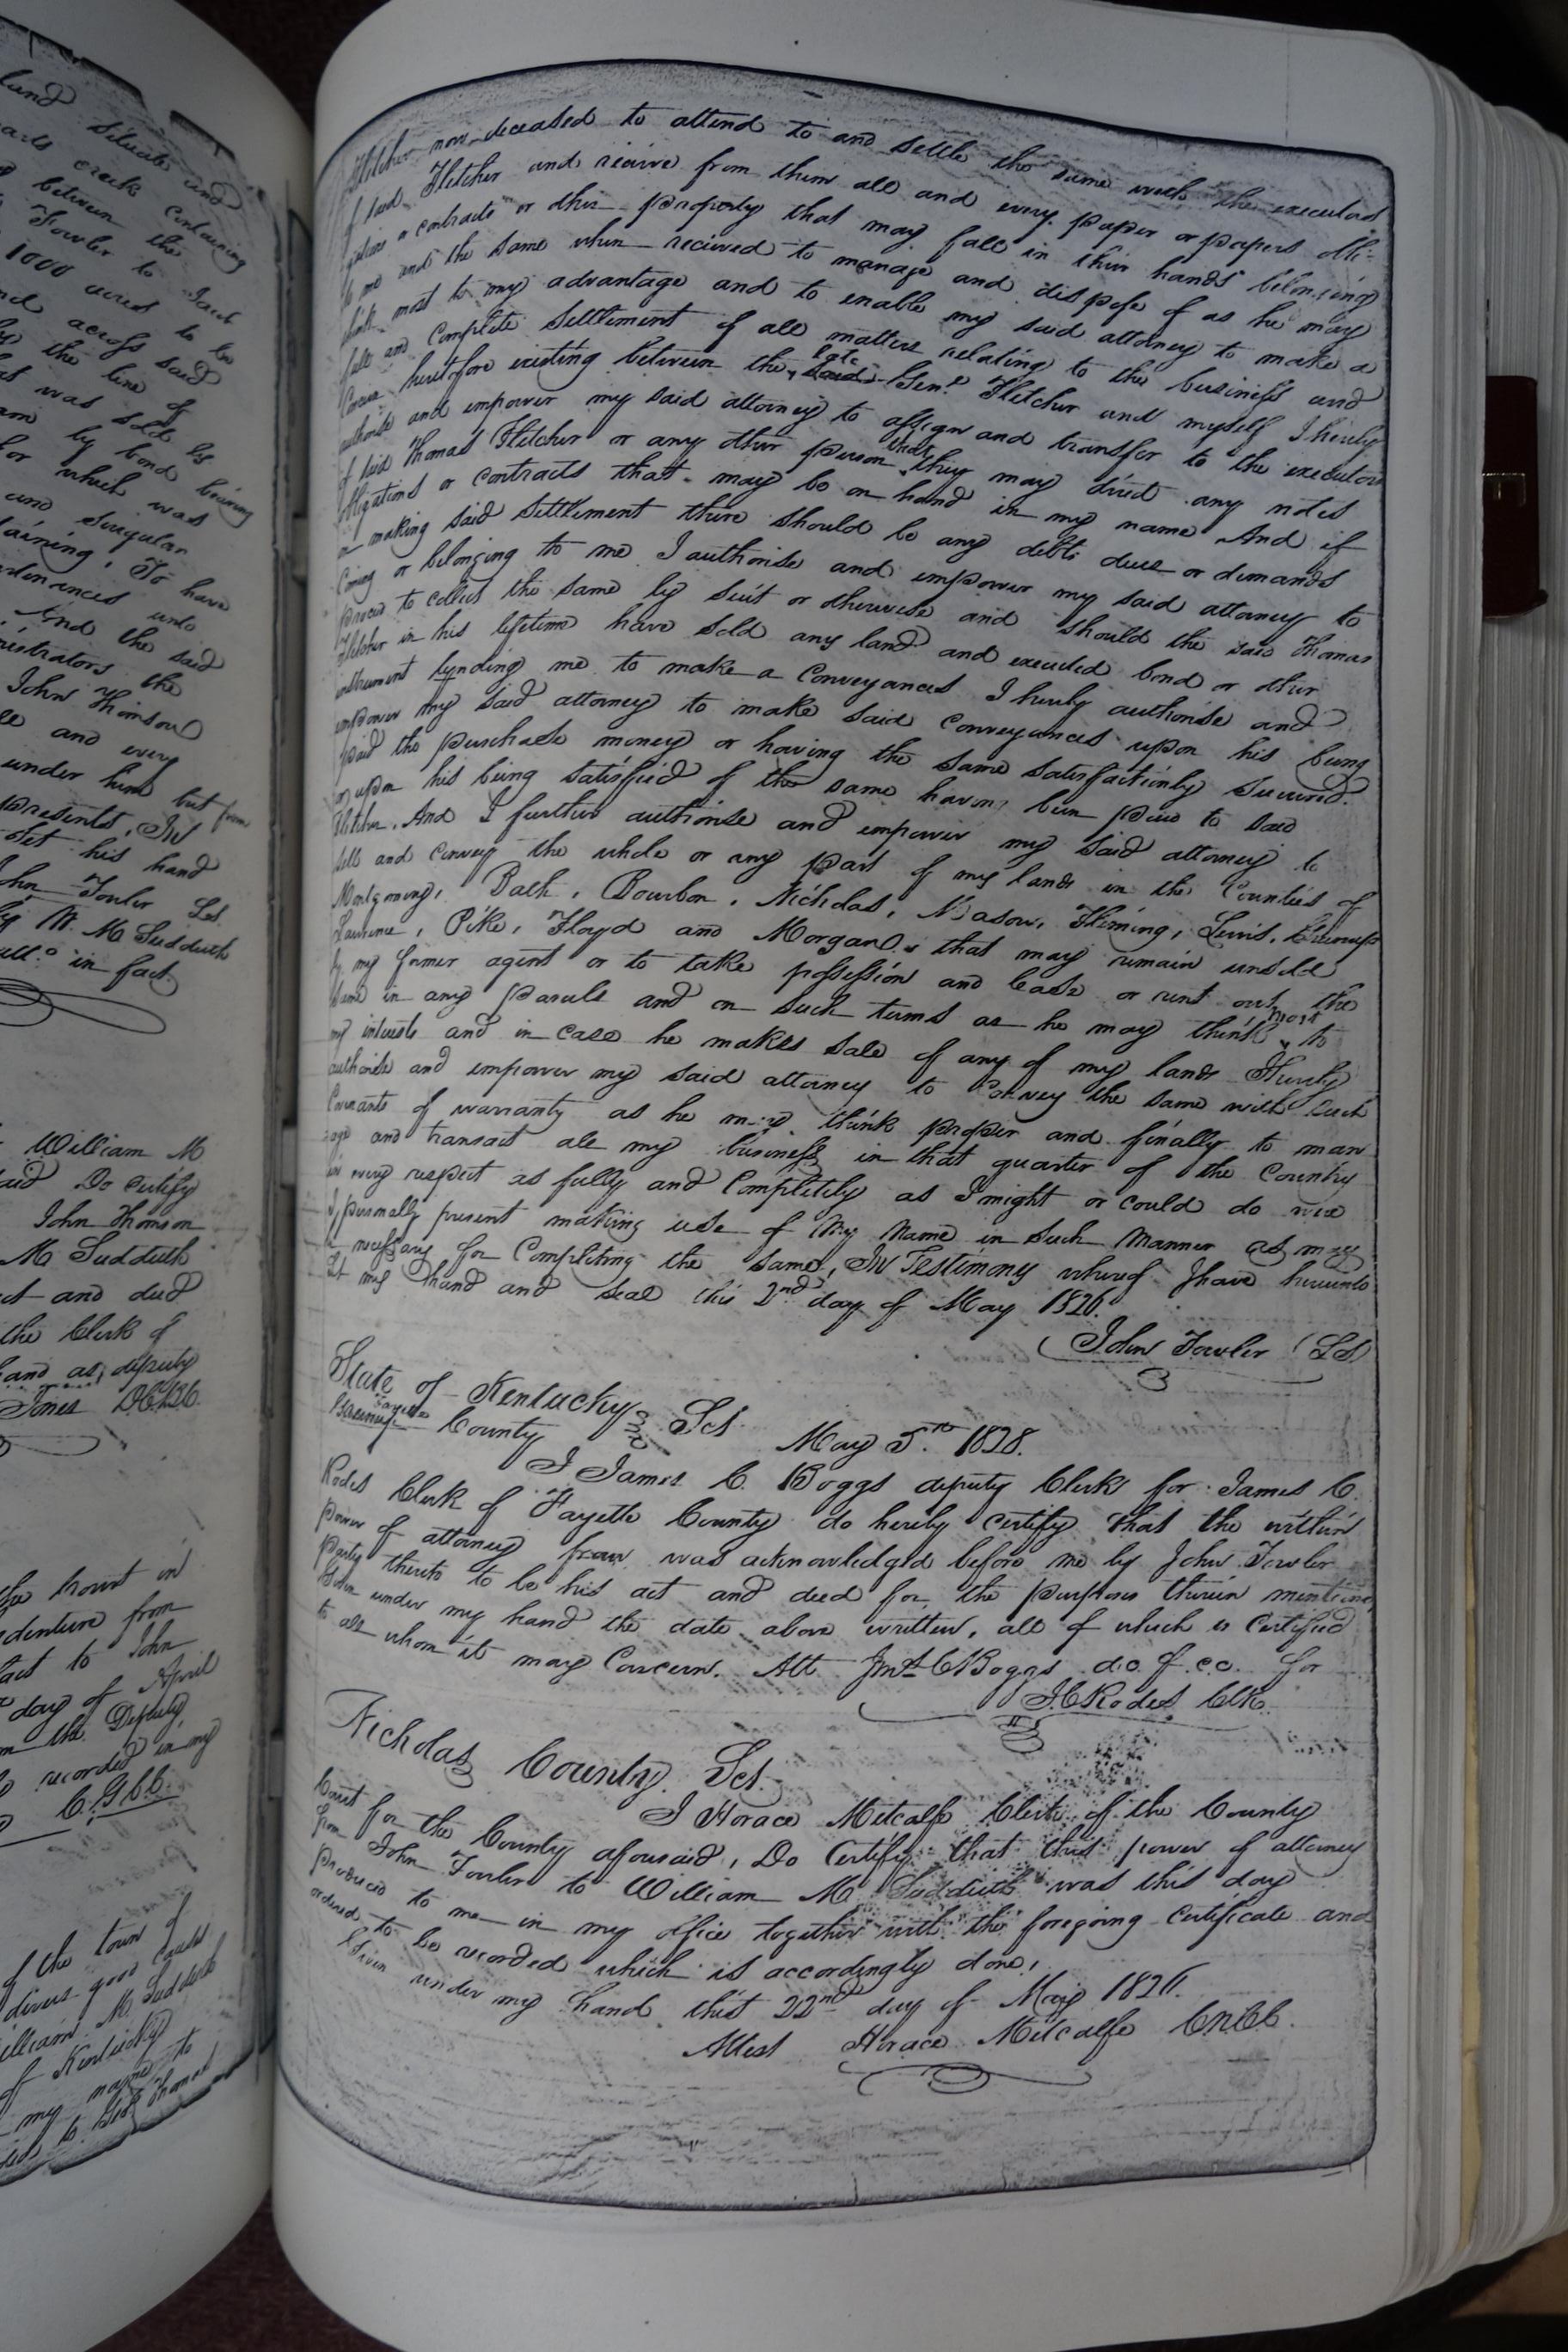 land
situate and
creek containing
between the
Fowler to Said
1000 acres to be
across said
the line of
was sold by
by bond being
for which was
and singular
To have
unto
And the said
the
John Thomson
and every
under him but from
presents, In
set his hand
John Fowler LS.
by W. M Sudduth
in fact
William M
Do certify
John Thomson
M Sudduth
act and deed
the Clerk of
hand as deputy
Jones
in
indenture from
to John
day of April
the Deputy
recorded in my
of the town of
divers good
William M Sudduth
of Kentucky
my name to
to Thomas
Fletcher now deceased to attend to and settle the same with the executors
of said Fletcher and recieve from them all and every paper or papers obli-
gations or contracts or other property that may fall in their hands belonging
to me and the same when recieved to manage and dispose of as he may
think most to my advantage and to enable my said attorney to make a
full and complete settlement of all matters relating to the business and
heretofore existing between the late said Genl. Fletcher and myself I hereby
authorise and empower my said attorney to assign and transfer to the executors
of said Thomas Fletcher or any other person that they may direct any notes
obligations or contracts that may be on hand in my name And if
on making said settlement there should be any debts due or demands
Coming or belonging to me I authorise and empower my said attorney to
proceed to collect the same by suit or otherwise and should the said Thomas
Fletcher in his lifetime have sold any land and executed bond or other
instrument bynding me to make a conveyances I hereby authorise and
empower my said attorney to make said conveyances upon his being
paid the purchase money or having the same satisfactionly secured.
or upon his being satisfied of the same having been paid to said
Fletcher. And I further authorise and empower my said attorney to
sell and convey the whole or any part of my lands in the Counties of
Montgomery, Bath, Bourbon, Nicholas, Mason, Fleming, Lewis, Greenup
Lawrence, Pike, Floyd and Morgan, that may remain unsold
by my former agent or to take possession and lease or rent out the
same in any parcels and on such terms as he may think most to
my interests and in case he makes sale of any of my lands I hereby
authorise and empower my said attorney to convey the same with such
Covenants of warranty as he may think proper and finally to man
age and transact all my business in that quarter of the country
in every respect as fully and completely as I might or could do were
I personally present making use of my name in such manner as may
be necessary for completing the same, In Testimony whereof I have hereunto
set my hand and seal this 2nd day of May 1826.
John Fowler (LS)
State of Kentucky Sct.
Fayette
Greenup County
May 5th 1828.
I James C. Boggs deputy Clerk for James C.
Rodes Clerk of Fayette County do hereby certify that the within
power of attorney from was acknowledged before me by John Fowler
party thereto to be his act and deed for the purposes therein mentioned
Given under my hand the date above written, all of which is Certified
to all whom it may Concern. Att Jms C Boggs d.c. f.c.c. for
J C Rodes Clk
Nicholas County Sct.
I Horace Metcalfe Clerk of the County
Court for the County aforesaid, Do Certify that this power of attorney
from John Fowler to William M Sudduth was this day
produced to me in my office together with the foregoing certificate and
ordered to be recorded which is accordingly done,
Given under my hand this 22nd day of May 1826.
Attest Horace Metcalfe C.N.C.C.